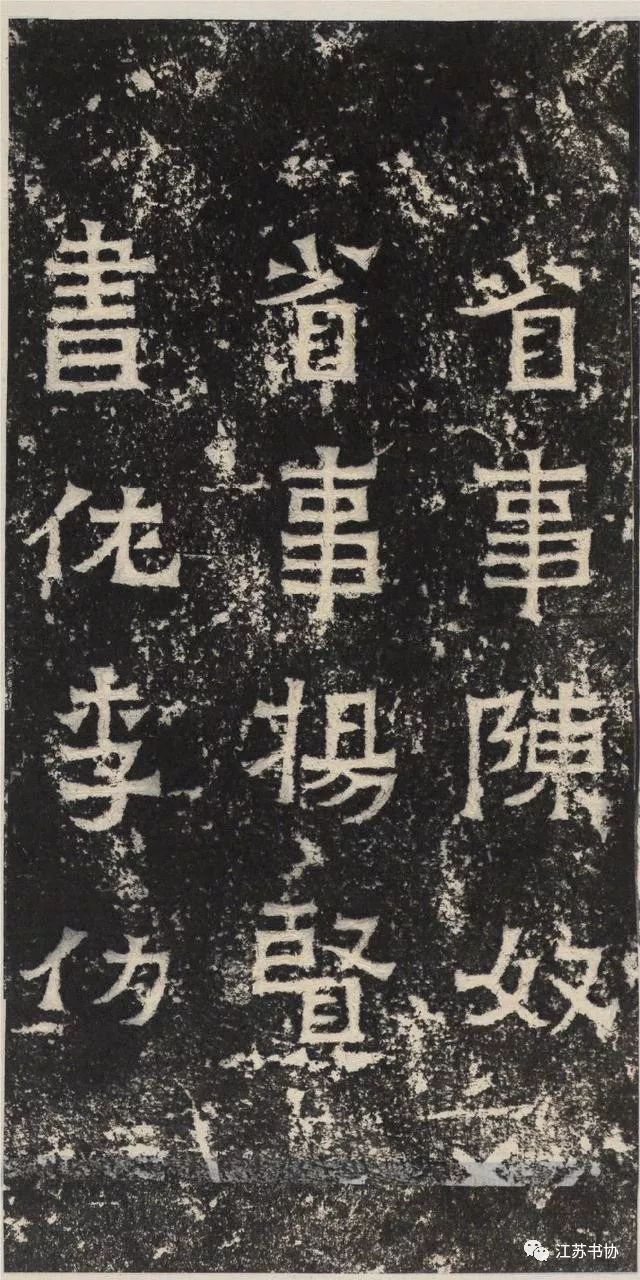 省事陳奴
省事楊賢
書佐李仂
江苏书协